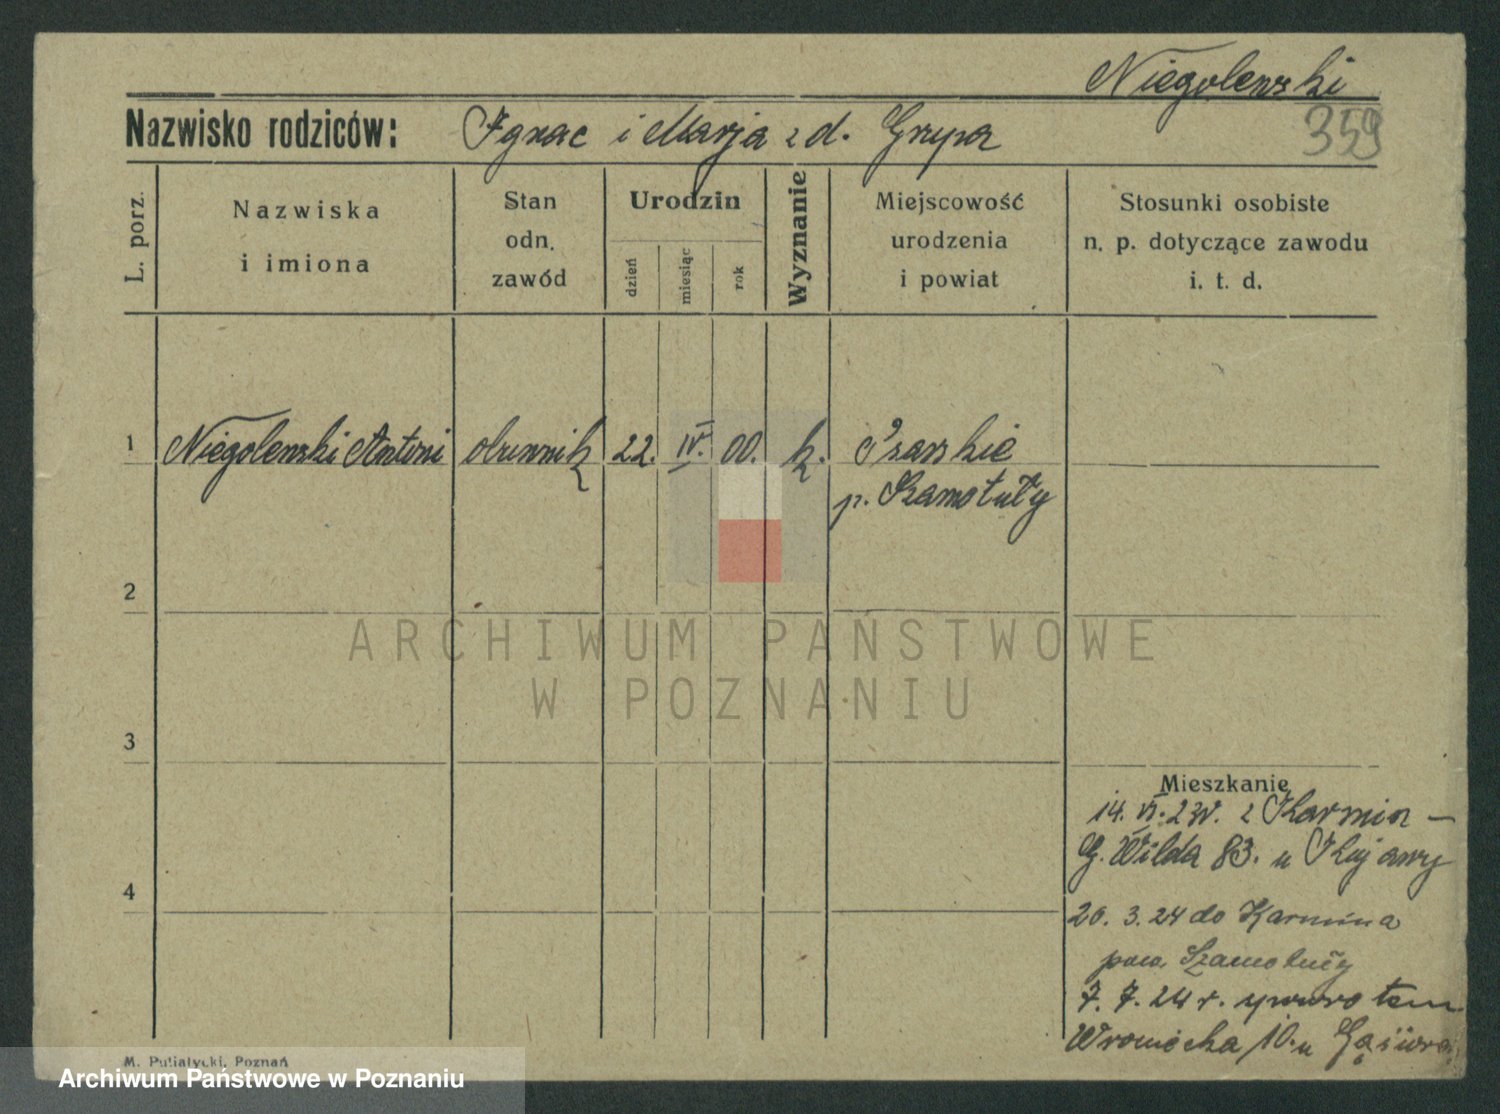 Niegolewski
359
Nazwisko rodziców: Ignac i Marja z d. Grupa
L. porz.
Nazwiska
i imiona
Stan
odn.
zawód
Urodzin
dzień
miesiąc
rok
Wyznanie
Miejscowość
urodzenia
i powiat
Stosunki osobiste
n. p. dotyczące zawodu
i. t. d.
1 Niegolewski Antoni 22. IV. 00. k.
p. Szamotuły
2
ARCHIWUM PAŃSTWOWE
W POZNANIU
3
Mieszkanie
14. VI. z Karmin –
G. Wilda 83. u Kujawy
20. 3. 24 do Karmina
pow. Szamotuły
4
7. 7. 24 r. tem
Wroniecka 10. u
M. Putiatycki, Poznań
Archiwum Państwowe w Poznaniu